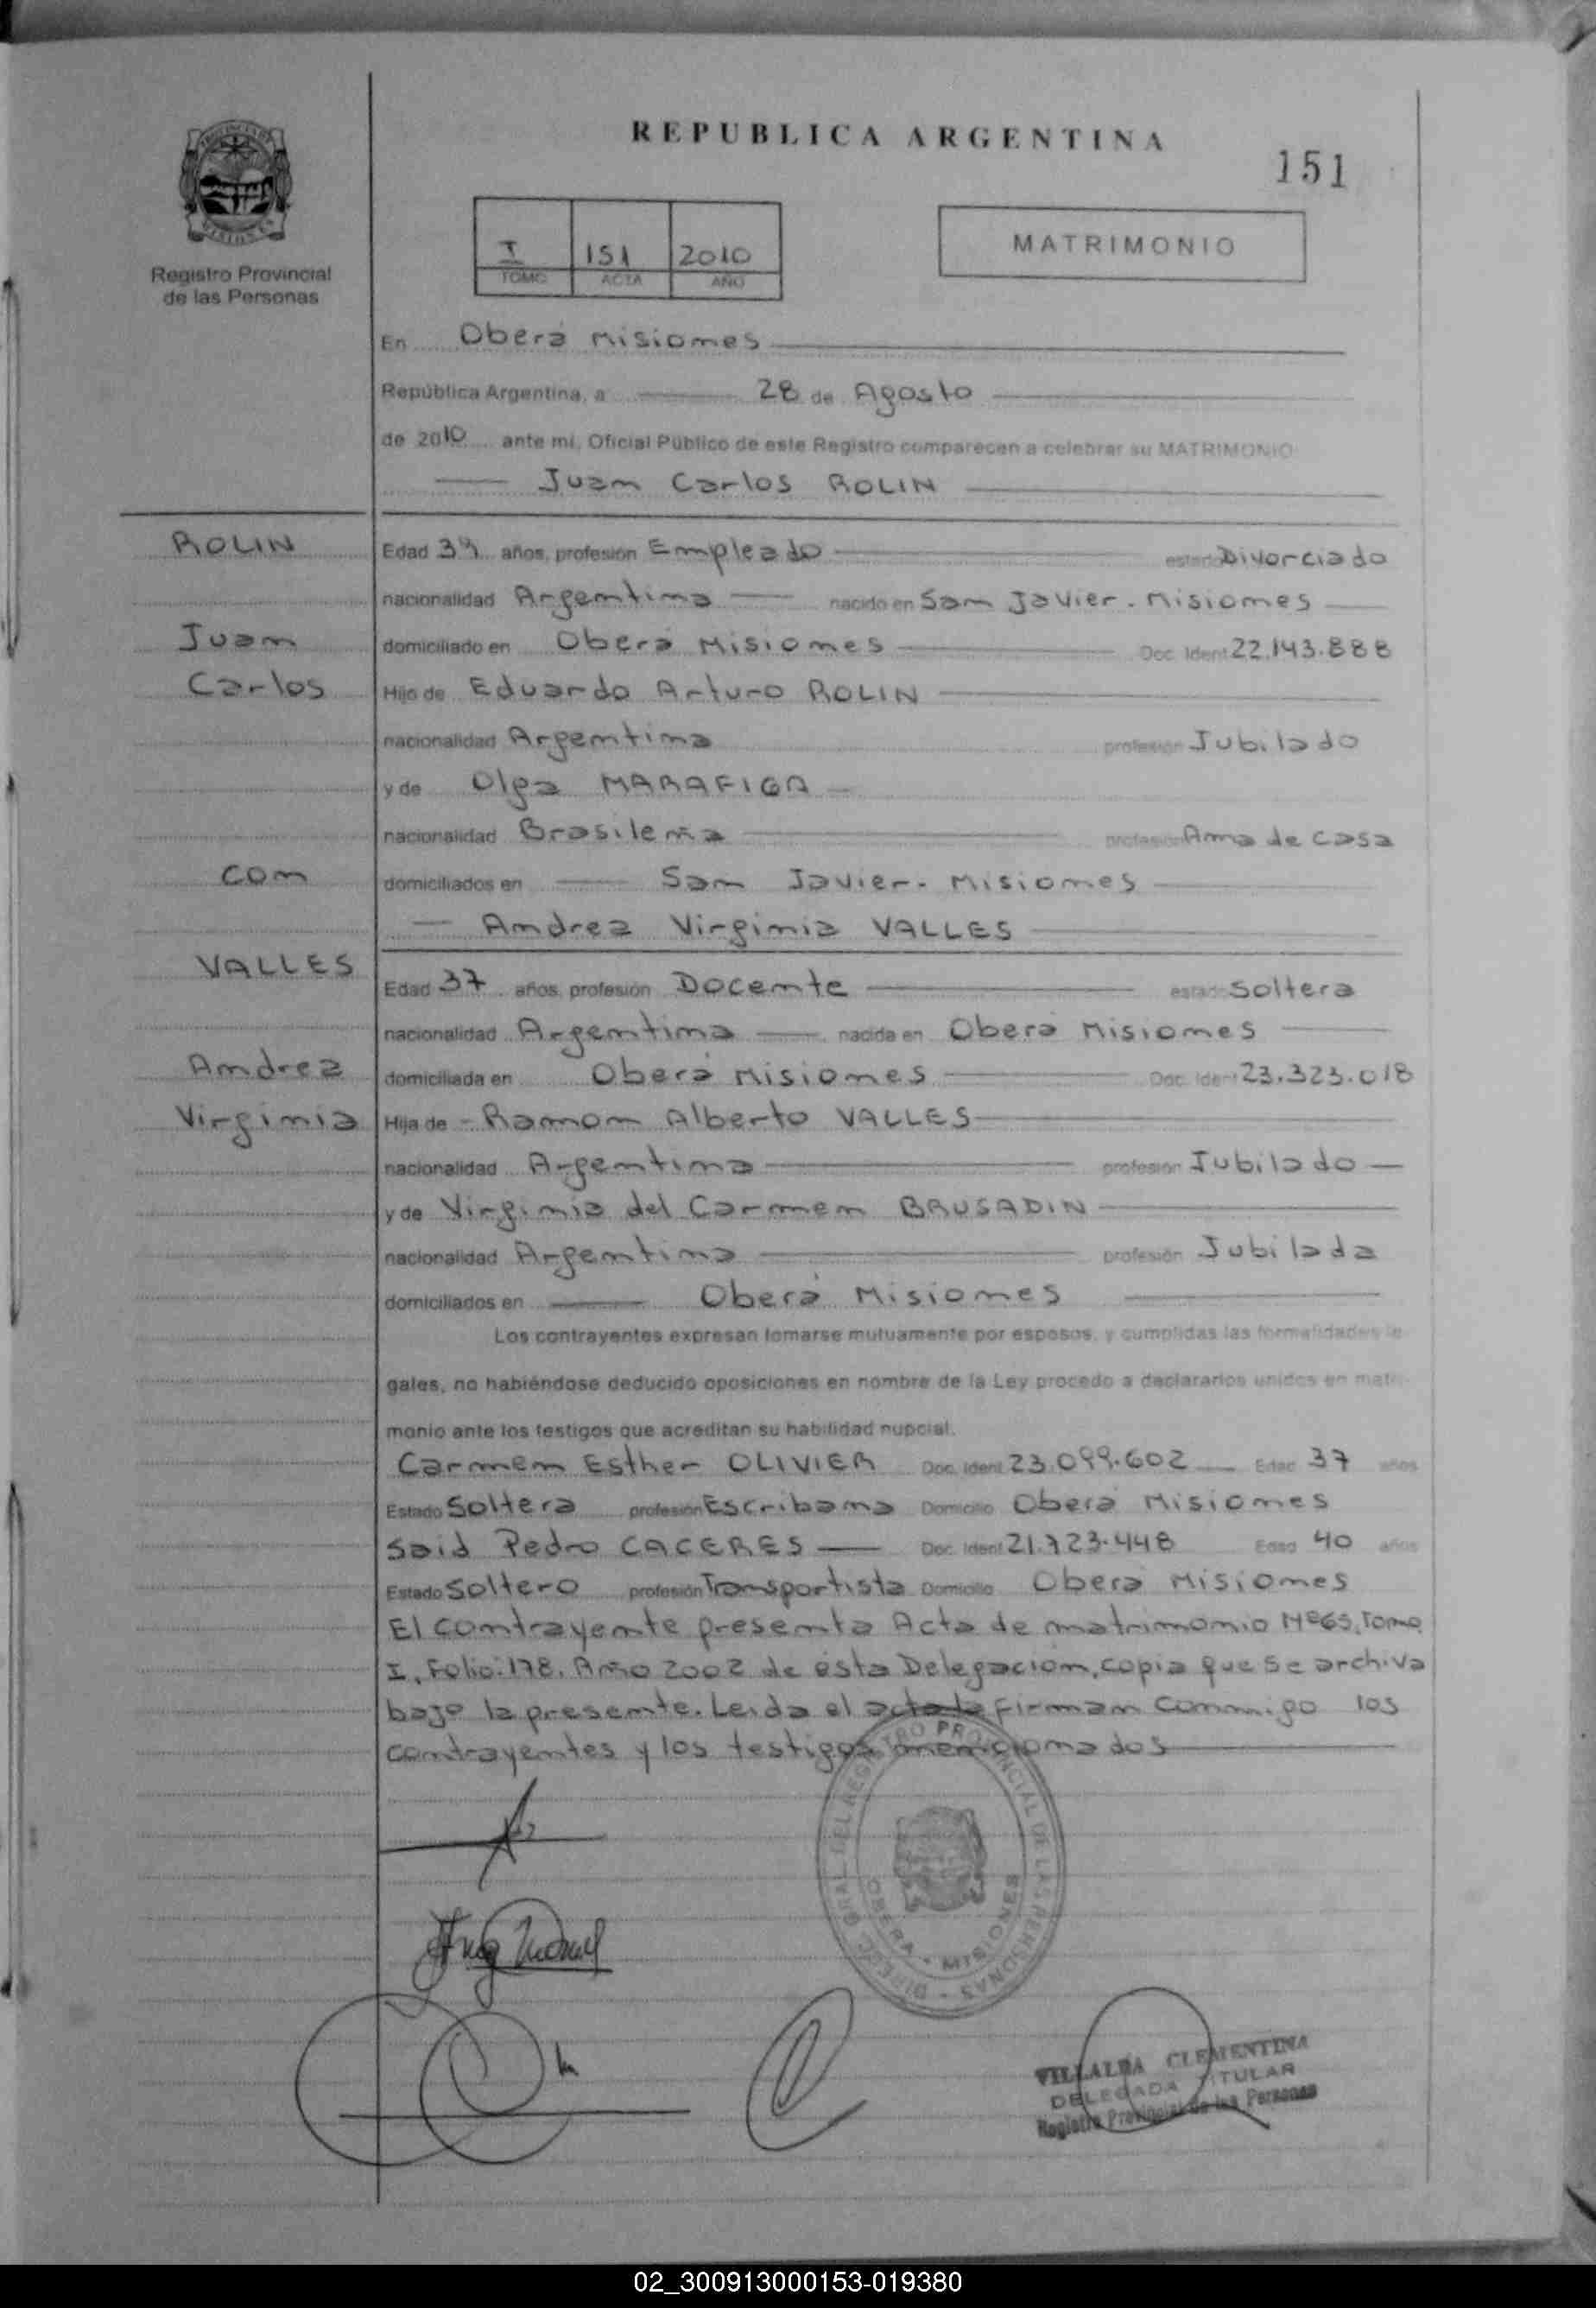 REPUBLICA ARGENTINA
151
Registro Provincial
de las Personas
I 151 2010
TOMO ACTA AÑO
MATRIMONIO
En Oberá Misiones
República Argentina, a 28 de Agosto
de 2010 ante mi, Oficial Público de este Registro comparecen a celebrar su MATRIMONIO
Juan Carlos ROLIN
ROLIN
Edad 39 años, profesión Empleado estado Divorciado
nacionalidad Argentina nacido en San Javier - Misiones
Juan
domiciliado en Oberá Misiones Doc. Ident 22.143.888
Carlos
Hijo de Eduardo Arturo ROLIN
nacionalidad Argentina profesión Jubilado
y de Olga MARAFIGA
nacionalidad Brasileña profesión Ama de casa
con
domiciliados en San Javier - Misiones
Andrea Virginia VALLES
VALLES
Edad 37 años, profesión Docente estado Soltera
nacionalidad Argentina nacida en Oberá Misiones
Andrea
domiciliada en Oberá Misiones Doc. Ident 23.323.018
Virginia
Hija de - Ramon Alberto VALLES
nacionalidad Argentina profesión Jubilado
y de Virginia del Carmen BRUSADIN
nacionalidad Argentina profesión Jubilada
domiciliados en Oberá Misiones
Los contrayentes expresan tomarse mutuamente por esposos, y cumplidas las formalidades le-
gales, no habiéndose deducido oposiciones en nombre de la Ley procedo a declararlos unidos en matri-
monio ante los testigos que acreditan su habilidad nupcial.
Carmen Esther OLIVIER Doc. Ident 23.099.602 Edad 37 años
Estado Soltera profesión Escribana Domicilio Oberá Misiones
Said Pedro CACERES Doc. Ident 21.723.448 Edad 40 años
Estado Soltero profesión Transportista Domicilio Oberá Misiones
El contrayente presenta Acta de matrimonio Nº65, Tomo
I, Folio: 178. Año 2002 de ésta Delegación, copia que se archiva
bajo la presente. Leida el acta la firman conmigo los
contrayentes y los testigos mencionados
DIRECC. GRAL. DEL REGISTRO PROVINCIAL DE LAS PERSONAS
OBERA - MISIONES
VILLALBA CLEMENTINA
DELEGADA TITULAR
Registro Provincial de las Personas
02_300913000153-019380